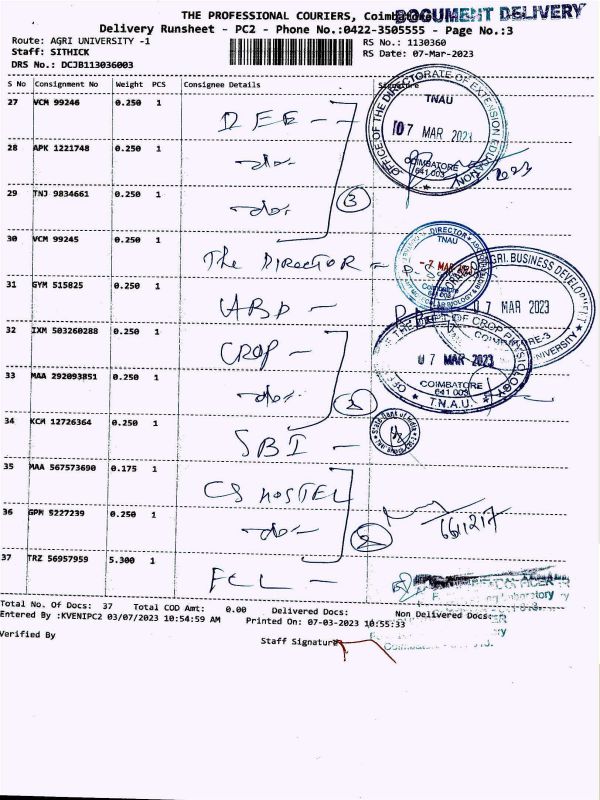 THE PROFESSIONAL COURIERS, Coimbatore
DOCUMENT DELIVERY
Delivery Runsheet - PC2 - Phone No.:0422-3505555 - Page No.:3
Route: AGRI UNIVERSITY -1
RS No.: 1130360
Staff: SITHICK
RS Date: 07-Mar-2023
DRS No.: DCJB113036003
S No Consignment No Weight PCS Consignee Details Signature
27 VCM 99246 0.250 1 DEE - -
28 APK 1221748 0.250 1 -do-
29 TNJ 9834661 0.250 1 -do-
3
OFFICE OF THE DIRECTORATE OF EXTENSION EDUCATION
TNAU
07 MAR 2023
COIMBATORE
641 003
30 VCM 99245 0.250 1 The DIRECTOR -
DIRECTOR
TNAU
- 7 MAR 2023
Coimbatore
31 GYM 515825 0.250 1 ABD -
AGRI. BUSINESS DEVELOPMENT
07 MAR 2023
COIMBATORE-3
UNIVERSITY
32 IXM 503260288 0.250 1 CROP -
33 MAA 292093851 0.250 1 -do-
2
OF CROP PHYSIOLOGY
07 MAR 2023
COIMBATORE
641 003
T.N.A.U.
34 KCM 12726364 0.250 1 SBI -
State Bank of India
35 MAA 567573690 0.175 1 CS HOSTEL
36 GPM 5227239 0.250 1 -do-
2
37 TRZ 56957959 5.300 1 FCL -
Total No. Of Docs: 37 Total COD Amt: 0.00 Delivered Docs: Non Delivered Docs:
Entered By :KVENIPC2 03/07/2023 10:54:59 AM Printed On: 07-03-2023 10:55:33
Verified By
Staff Signature